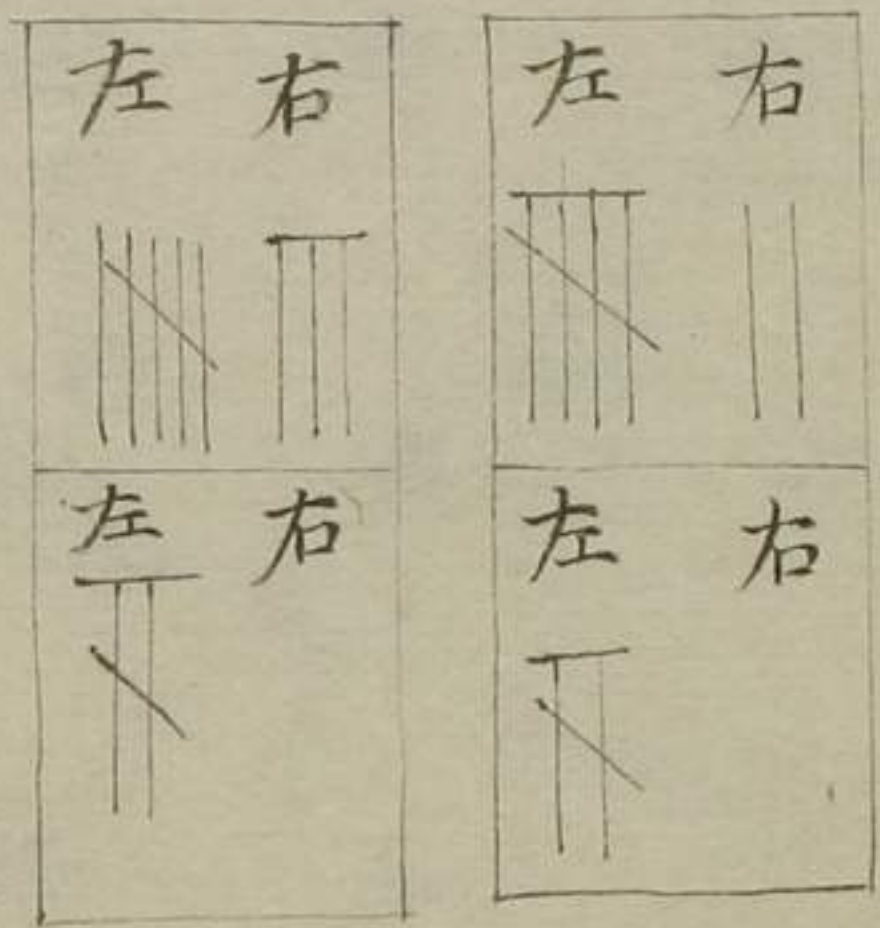 左 右
左 右
左 右
左 右